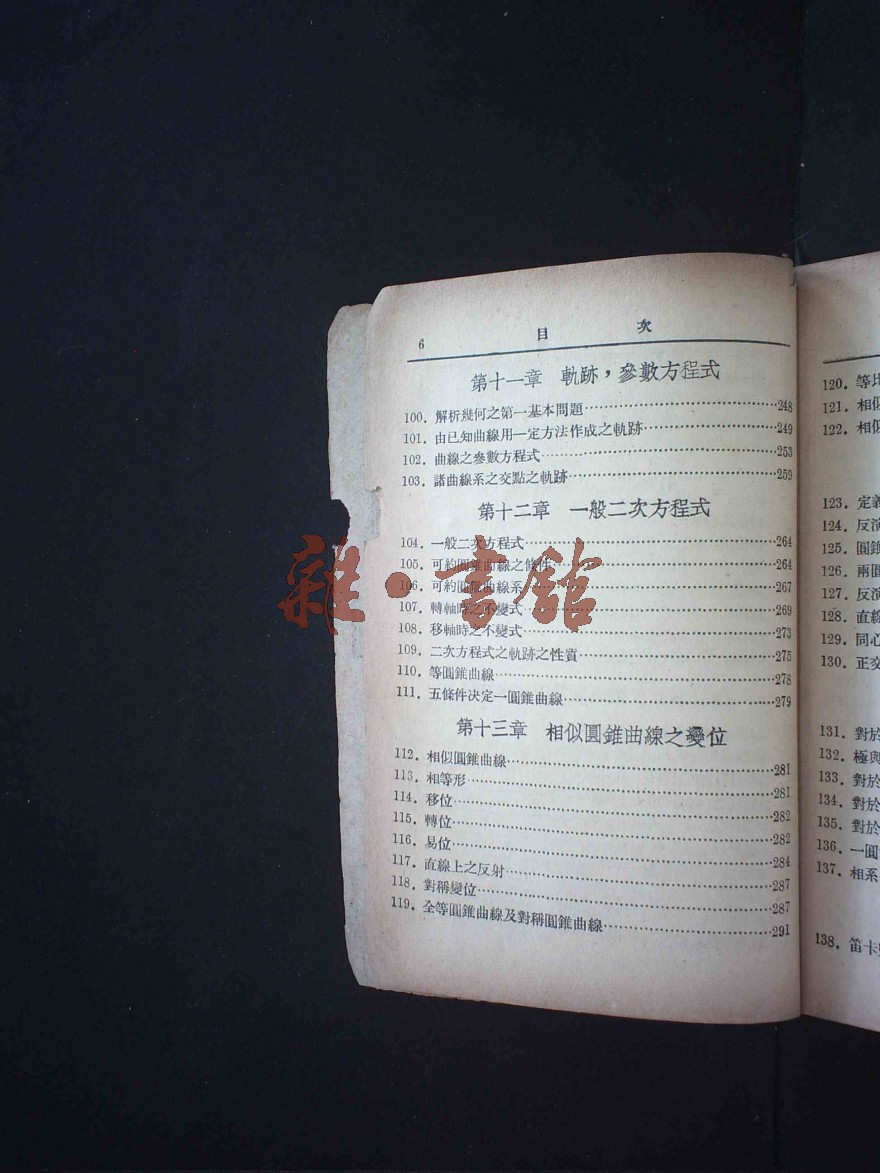 6 目次
第十一章 軌跡，參數方程式
100. 解析幾何之第一基本問題 248
101. 由已知曲線用一定方法作成之軌跡 249
102. 曲線之參數方程式 253
103. 諸曲線系之交點之軌跡 259
第十二章 一般二次方程式
104. 一般二次方程式 264
105. 可約圓錐曲線之條件 264
106. 可約圓錐曲線系 267
107. 轉軸時之不變式 269
108. 移軸時之不變式 273
109. 二次方程式之軌跡之性質 275
110. 等圓錐曲線 278
111. 五條件決定一圓錐曲線 279
第十三章 相似圓錐曲線之變位
112. 相似圓錐曲線 281
113. 相等形 281
114. 移位 282
115. 轉位 282
116. 易位 284
117. 直線上之反射 287
118. 對稱變位 287
119. 全等圓錐曲線及對稱圓錐曲線 291
雜·書館
120. 等比
121. 相似
122. 相似
123. 定義
124. 反演
125. 圓錐
126. 兩圓
127. 反演
128. 直線
129. 同心
130. 正交
131. 對於
132. 極與
133. 對於
134. 對於
135. 對於
136. 一圓
137. 相系
138. 笛卡